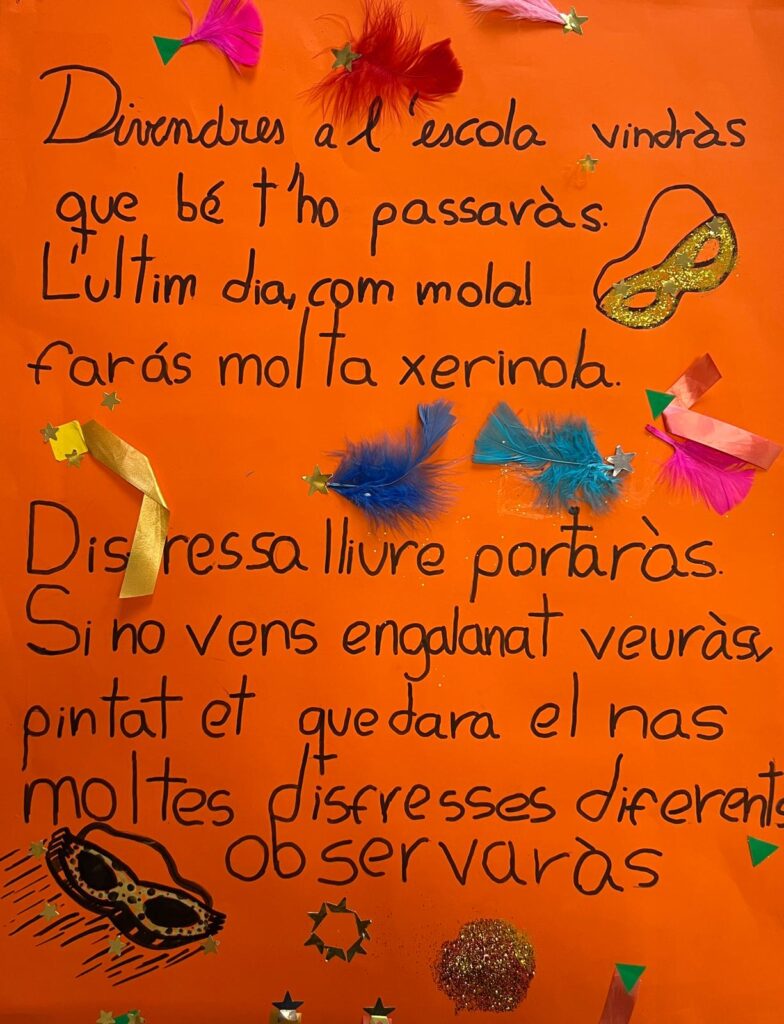 Divendres a l'escola vindràs
que bé t'ho passaràs.
L'ultim dia, com mola!
farás molta xerinola.
Disfressa lliure portaràs.
Si no vens engalanat veuràs,
pintat et quedara el nas
moltes disfresses diferents
observaràs